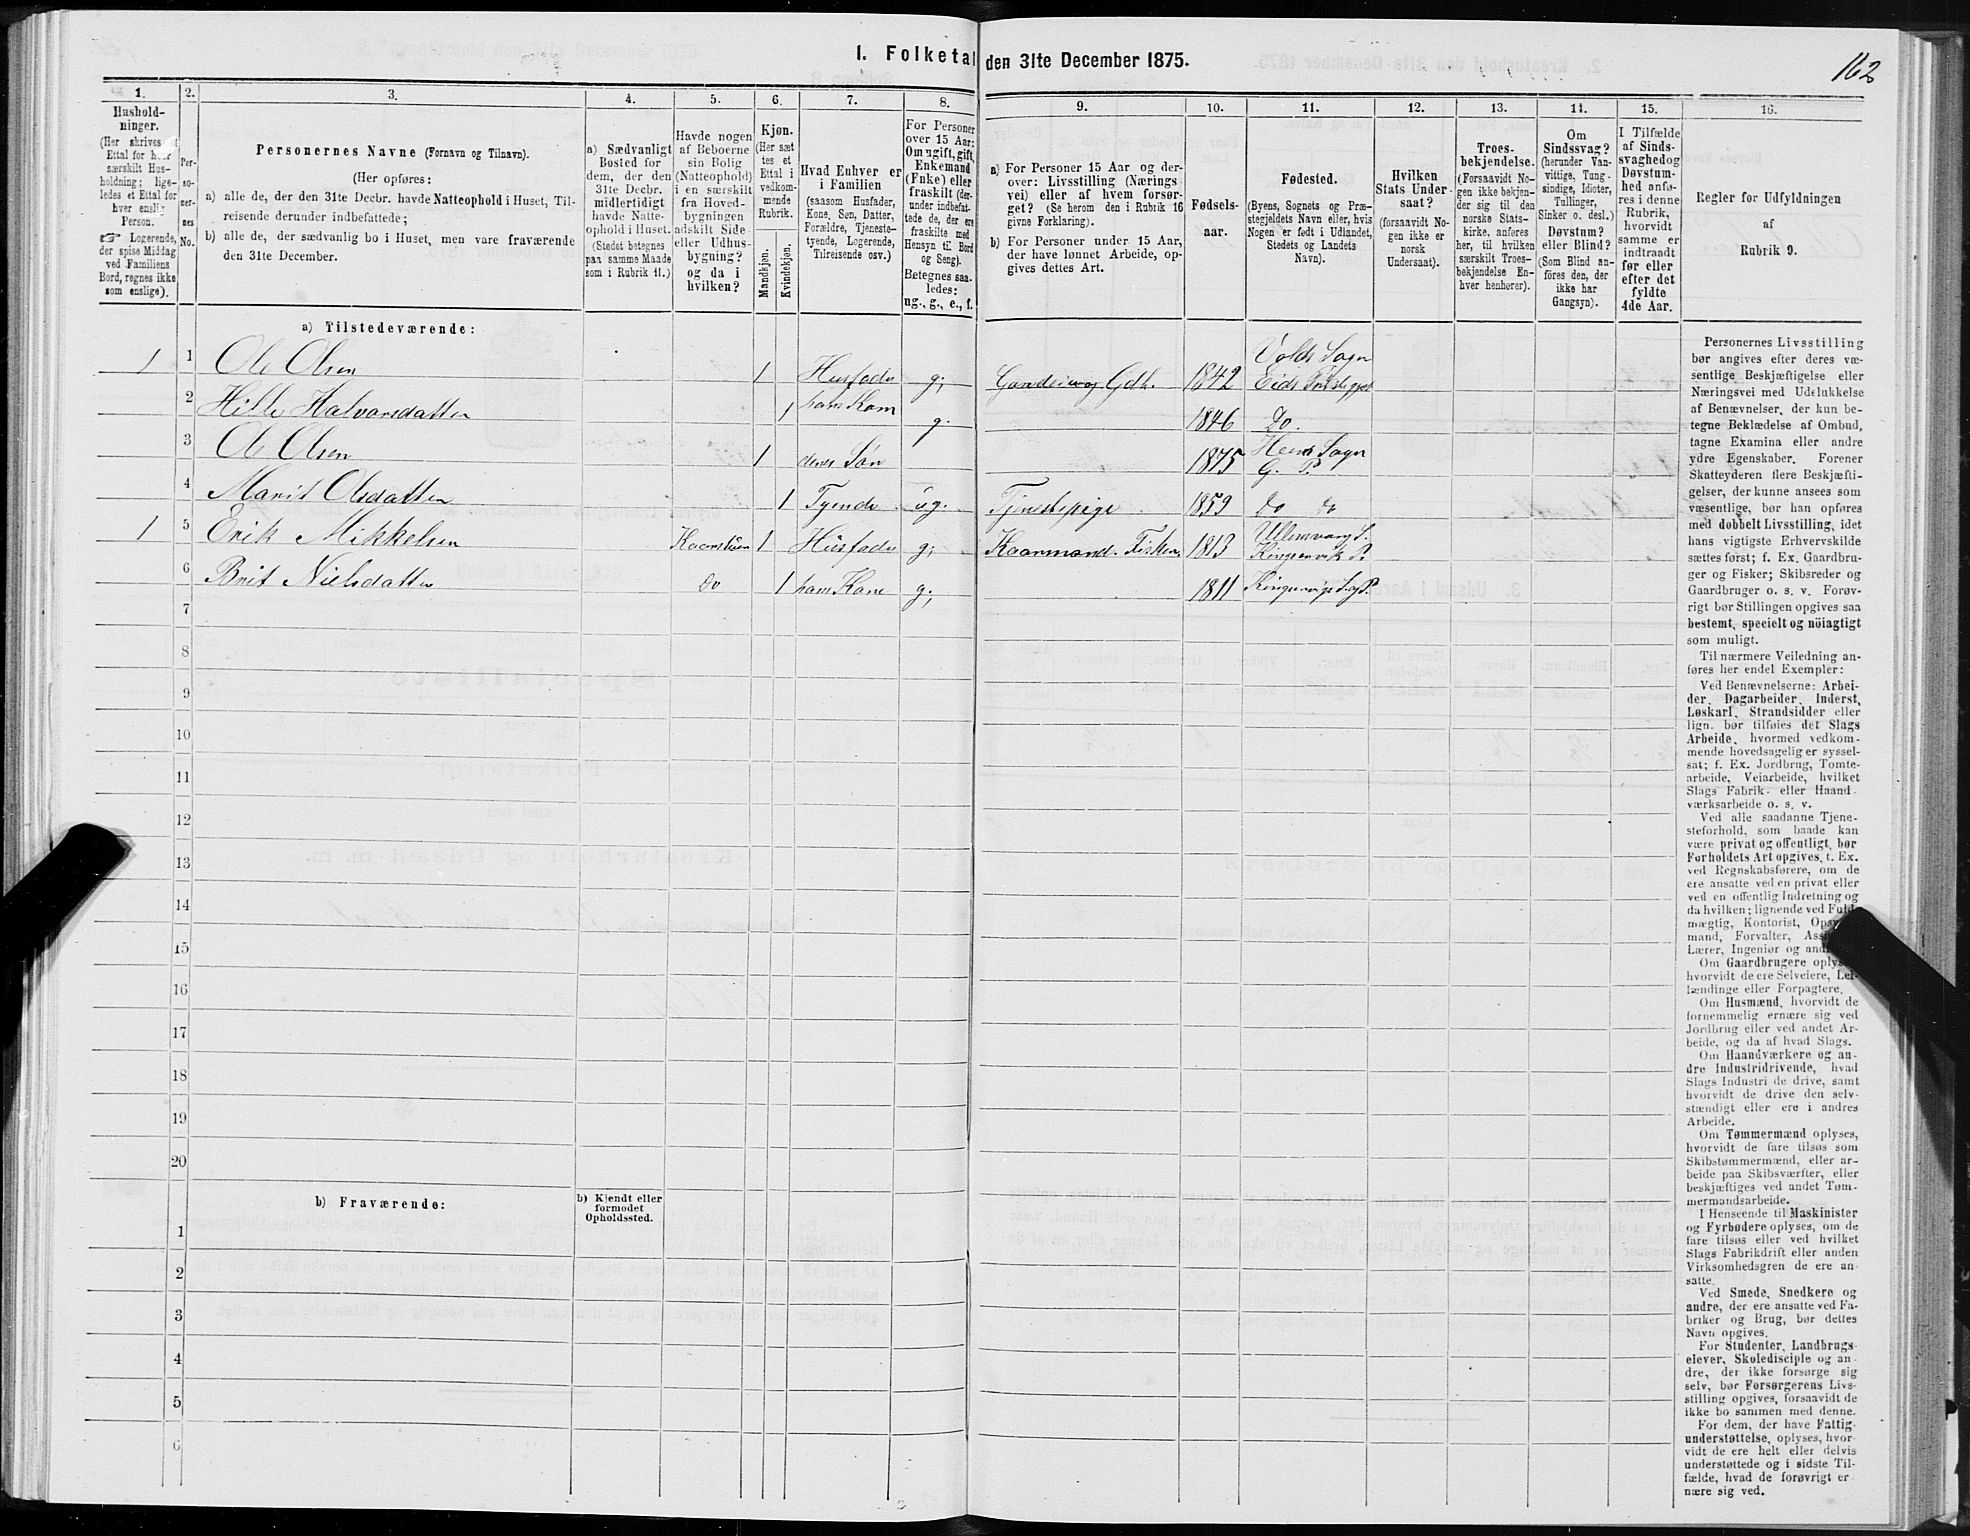 I. Folketal den 31te December 1875.
162
1.
2.
3.
4.
5.
6.
7.
8.
9.
10.
11.
12.
13.
14.
15.
16.
Hushold-
ninger.
(Her skrives et
Ettal for hver
særskilt Hus-
holdning; lige-
ledes et Ettal for
hver enslig
Person.
☞ Logerende,
der spise Middag
ved Familiens
Bord, regnes ikke
som enslige).
Per-
so-
ner-
nes
No.
Personernes Navne (Fornavn og Tilnavn).
(Her opføres:
a) alle de, der den 31te Decbr. havde Natteophold i Huset, Til-
reisende derunder indbefattede;
b) alle de, der sædvanlig bo i Huset, men vare fraværende
den 31te December.
a) Sædvanligt
Bosted for
dem, der den
31te Decbr.
midlertidigt
havde Natte-
ophold i Huset.
(Stedet betegnes
paa samme Maade
som i Rubrik 11.)
Havde nogen
af Beboerne
sin Bolig
(Natteophold)
i en særskilt
fra Hoved-
bygningen
adskilt Side-
eller Udhus-
bygning?
og da i
hvilken?
Kjøn.
(Her sæt
tes et
Ettal i
vedkom-
mende
Rubrik.
Mandkjøn.
Kvindekjøn.
Hvad Enhver er
i Familien
(saasom Husfader,
Kone, Søn, Datter,
Forældre, Tjeneste-
tyende, Logerende,
Tilreisende osv.)
For Personer
over 15 Aar:
Om ugift, gift,
Enkemand
(Enke) eller
fraskilt (der-
under indbefat-
tede de, der ere
fraskilte med
Hensyn til Bord
og Seng).
Betegnes saa-
ledes:
ug., g., e., f.
a) For Personer 15 Aar og der-
over: Livsstilling (Nærings
vei) eller af hvem forsør-
get? (Se herom den i Rubrik 16
givne Forklaring).
b) For Personer under 15 Aar,
der have lønnet Arbeide, op-
gives dettes Art.
Fødsels-
aar.
Fødested.
(Byens, Sognets og Præ-
stegjeldets Navn eller, hvis
Nogen er født i Udlandet,
Stedets og Landets
Navn).
Hvilken
Stats Under-
saat?
(forsaavidt No-
gen ikke er
norsk
Undersaat).
Troes-
bekjendelse.
(Forsaavidt No-
gen ikke bekjen-
der sig til den
norske Stats-
kirke, anføres
her, til hvilken
særskilt Troes-
bekjendelse En-
hver henhører).
Om
Sindssvag?
(herunder Van-
vittige, Tung-
sindige, Idioter,
Tullinger,
Sinker o. desl.)
Døvstum?
eller Blind?
(Som Blind an-
føres den, der
ikke har
Gangsyn).
I Tilfælde
af Sinds-
svaghed og
Døvstum-
hed anfø-
res i denne
Rubrik,
hvorvidt
samme er
indtraadt
før eller
efter det
fyldte
4de Aar.
Regler for Udfyldningen
af
Rubrik 9.
a) Tilstedeværende:
1 1 Ole Olsen 1 Husfader g; Gdb. 1842 Volds Sogn
Eids
2 Hille Halvorsdatter 1 hans Kone g. 1846 Do.
3 Ole Olsen 1 deres Søn 1875 Hens Sogn
G. P.
4 Marit Olsdatter 1 Tyende ug. Tjenestepige 1859 do do
1 5 Erik Mikkelsen 1 Husfader g; Kaarmand. Fisker 1813 Ullensvang S.
Kingservik P.
6 Brit Nielsdatter Do 1 hans Kone g; 1811
7
8
9
10
11
12
13
14
15
16
17
18
19
20
b) Fraværende:
b) Kjendt eller
formodet
Opholdssted.
1
2
3
4
5
6
Personernes Livsstilling
bør angives efter deres væ-
sentlige Beskjæftigelse eller
Næringsvei med Udelukkelse
af Benævnelser, der kun be-
tegne Beklædelse af Ombud,
tagne Examina eller andre
ydre Egenskaber. Forener
Skatteyderen flere Beskjæfti-
gelser, der kunne ansees som
væsentlige, bør han opføres
med dobbelt Livsstilling, idet
hans vigtigste Erhvervskilde
sættes først; f. Ex. Gaardbru-
ger og Fisker; Skibsreder og
Gaardbruger o. s. v. Forøv-
rigt bør Stillingen opgives saa
bestemt, specielt og nöiagtigt
som muligt.
Til nærmere Veiledning an-
føres her endel Exempler:
Ved Benævnelserne: Arbei-
der, Dagarbeider, Inderst,
Løskarl, Strandsidder eller
lign. bør tilføies det Slags
Arbeide, hvormed vedkom-
mende hovedsagelig er syssel-
sat; f. Ex. Jordbrug, Tomte-
arbeide, Veiarbeide, hvilket
Slags Fabrik- eller Haand-
værksarbeide o. s. v.
Ved alle saadanne Tjene-
steforhold, som baade kan
være privat og offentligt, bør
Forholdets Art opgives, t. Ex.
ved Regnskabsførere, om de
ere ansatte ved en privat eller
ved en offentlig Indretning og
da hvilken; lignende ved Fuld-
mægtig, Kontorist,
mand, Forvalter,
Lærer, Ingeniør og
Om Gaardbrugere
hvorvidt de ere Selveiere, Lei-
lændinge eller Forpagtere.
Om Husmænd, hvorvidt de
fornemmelig ernære sig ved
Jordbrug eller ved andet Ar-
beide, og da af hvad Slags.
Om Haandværkere og an-
dre Industridrivende, hvad
Slags Industri de drive, samt
hvorvidt de drive den selv-
stændigt eller ere i andres
Arbeide.
Om Tømmermænd oplyses,
hvorvidt de fare tilsøs som
Skibstømmermænd, eller ar-
beide paa Skibsværfter, eller
beskjæftiges ved andet Tøm-
mermandsarbeide.
I Henseende til Maskinister
og Fyrbødere oplyses, om de
fare tilsøs eller ved hvilket
Slags Fabrikdrift eller anden
Virksomhedsgren de ere an-
satte.
Ved Smede, Snedkere og
andre, der ere ansatte ved Fa-
briker og Brug, bør dettes
Navn opgives.
For Studenter, Landbrugs-
elever, Skoledisciple og an-
dre, der ikke forsørge sig
selv, bør Forsørgerens Livs-
stilling opgives, forsaavidt de
ikke bo sammen med denne.
For dem, der have Fattig-
understøttelse, oplyses, hvor-
vidt de ere helt eller delvis
understøttede og i sidste Til-
fælde, hvad de forøvrigt er-
nære sig ved.